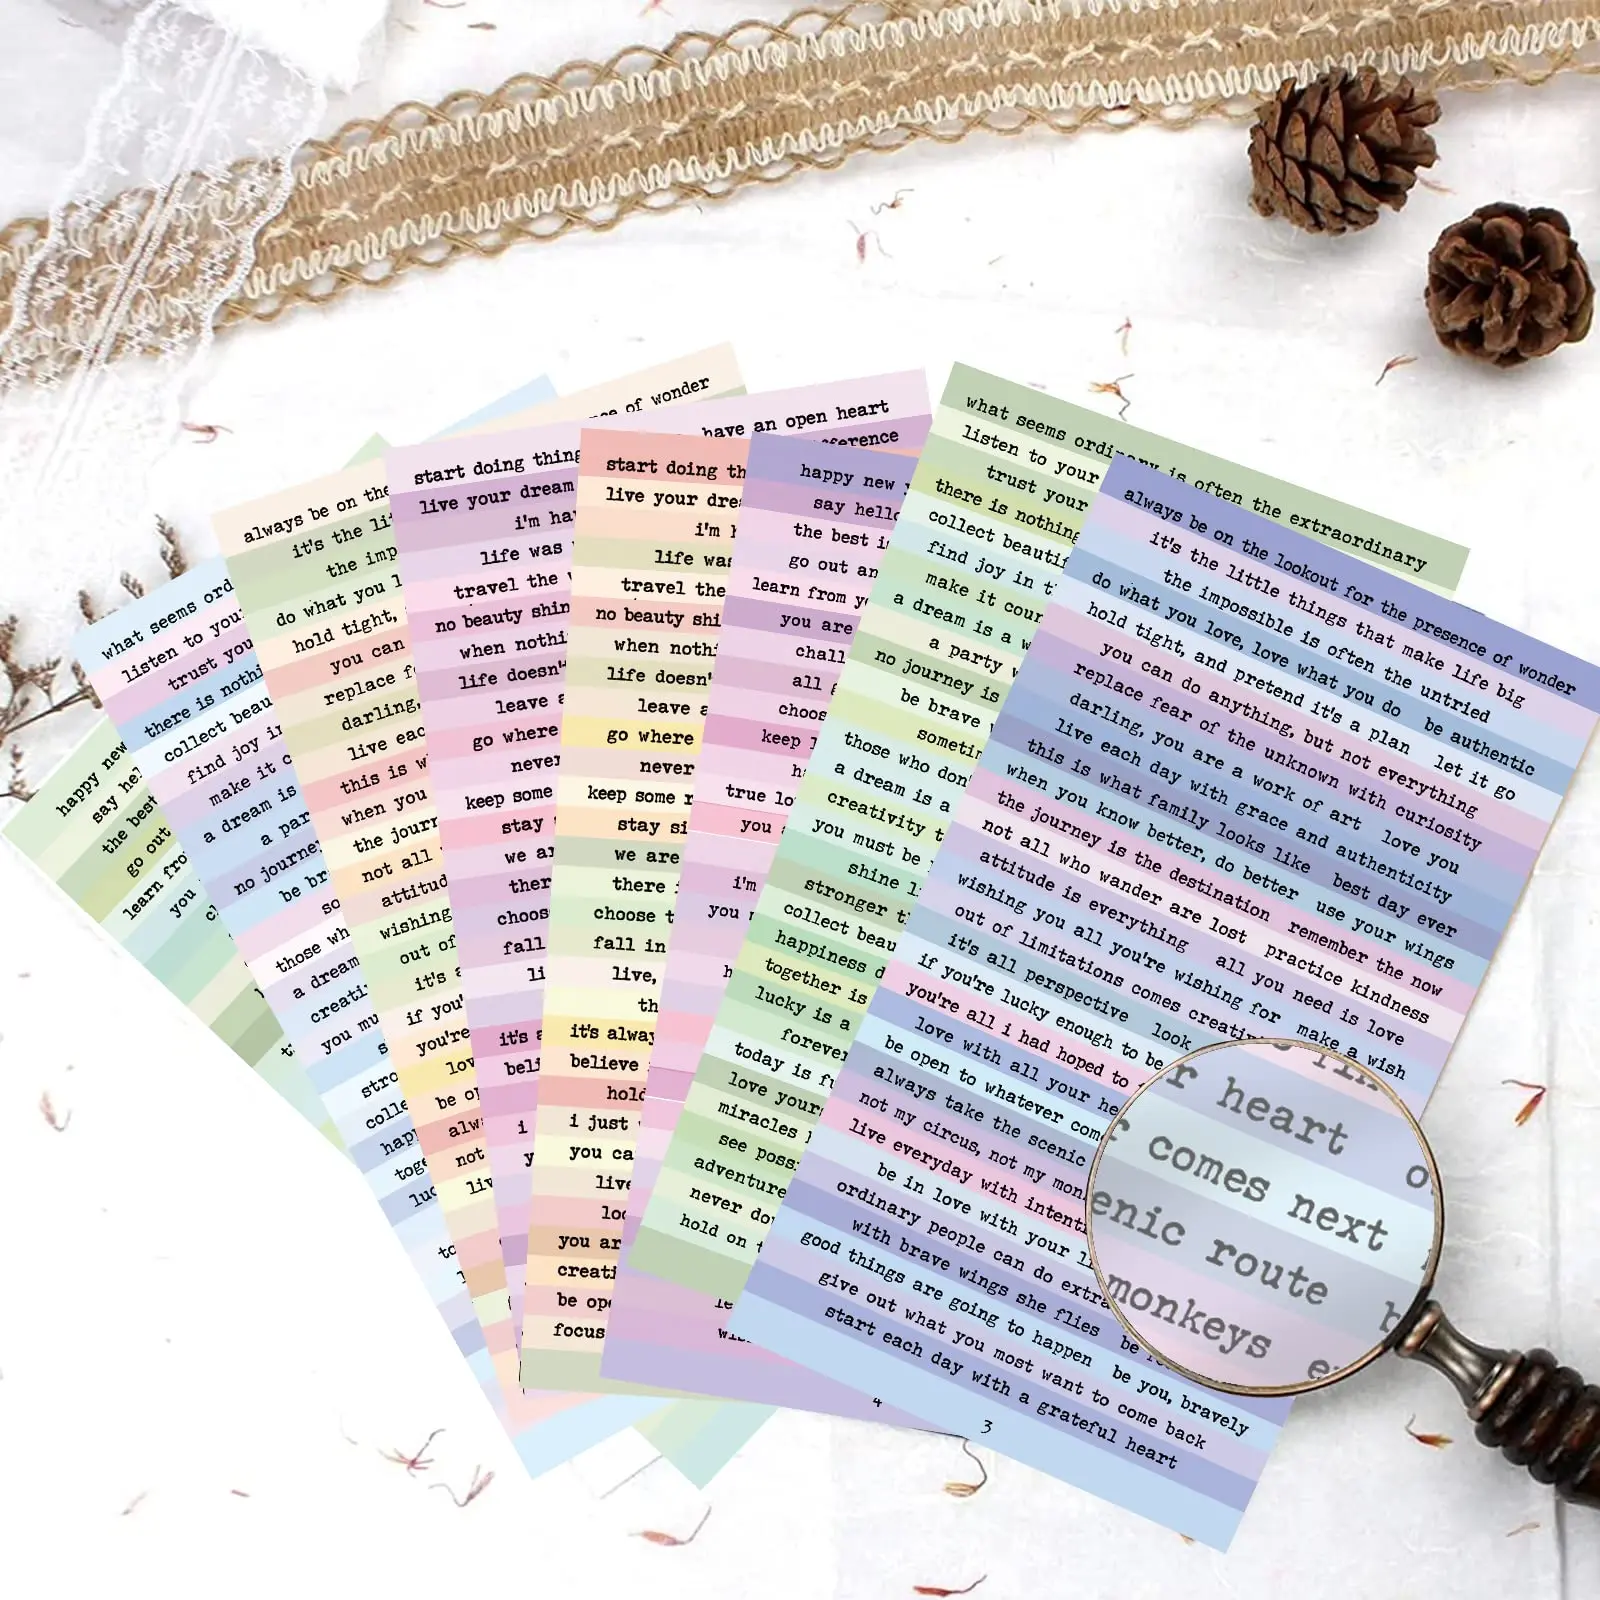 happy new
say hel
the best
go out
learn fro
you
what seems ord
listen to your
trust you
there is nothi
collect beau
find joy in
make it c
a dream is
a par
no journe
be br
so
those wh
a dream
creati
you mu
s
stro
colle
happ
toge
luc
nce of wonder
always be on the
it's the li
the imp
do what you l
hold tight,
you can
replace f
darling,
live eac
this is w
when you
the jour
not all
attitud
wishing
out of
it's a
if you'
you're
lov
be o
alw
not
liv
have an open heart
ference
start doing thing
live your dream
i'm ha
life was
travel the
no beauty shin
when nothi
life doesn't
leave a
go where
never
keep some
stay
we ar
ther
choos
fall
li
it's a
beli
i
y
start doing th
live your drea
i'm h
life was
travel the
no beauty shi
when nothi
life doesn'
leave a
go where
never
keep some r
stay si
we are
there
choose t
fall in
live,
th
it's alway
believe
hold
i just
you ca
live
lo
you ar
creati
be ope
focus
happy new
say hello
the best i
go out an
learn from y
you are
chall
all g
choos
keep
ha
true lo
you a
i'm
you n
h
le
wis
4
what seems ordinary is often the extraordinary
listen to your
trust your
there is nothing
collect beautif
find joy in t
make it cour
a dream is a w
a party w
no journey is
be brave
sometim
those who don'
a dream is a
creativity t
you must be
shine l
stronger t
collect beau
happiness d
together is
lucky is a
forever
today is fu
love your
miracles
see poss
adventure
never do
hold on t
always be on the lookout for the presence of wonder
it's the little things that make life big
the impossible is often the untried
do what you love, love what you do be authentic
hold tight, and pretend it's a plan let it go
you can do anything, but not everything
replace fear of the unknown with curiosity
darling, you are a work of art love you
live each day with grace and authenticity
this is what family looks like best day ever
when you know better, do better use your wings
the journey is the destination remember the now
not all who wander are lost practice kindness
attitude is everything all you need is love
wishing you all you're wishing for make a wish
out of limitations comes creativi
it's all perspective look
if you're lucky enough to be
you're all i had hoped to
love with all your he
be open to whatever com
always take the scenic
not my circus, not my mon
live everyday with intenti
be in love with your li
ordinary people can do extra
with brave wings she flies be
good things are going to happen be you, bravely
give out what you most want to come back
start each day with a grateful heart
3
r heart
r comes next
enic route
monkeys